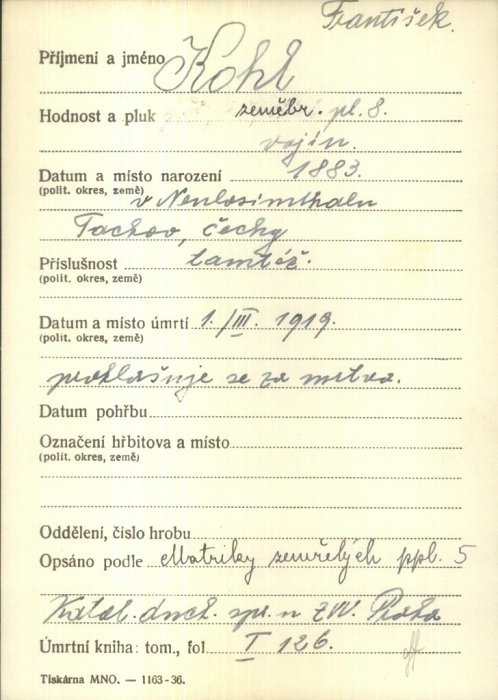 František.
Příjmení a jméno Kohl
Hodnost a pluk zeměbr. pl. 8.
vojín.
Datum a místo narození 1883.
(polit. okres, země) v Neulosimthalu
Tachov, čechy
Příslušnost tamtéž.
(polit. okres, země)
Datum a místo úmrtí 1./III. 1919.
(polit. okres, země)
prohlašuje se za mrtva.
Datum pohřbu
Označení hřbitova a místo
(polit. okres, země)
Oddělení, číslo hrobu
Opsáno podle Matriky zemřelých ppl. 5
Katol. duch. spr. u ZVV. Praha
Úmrtní kniha: tom., fol. I 126.
Tiskárna MNO. — 1163-36.